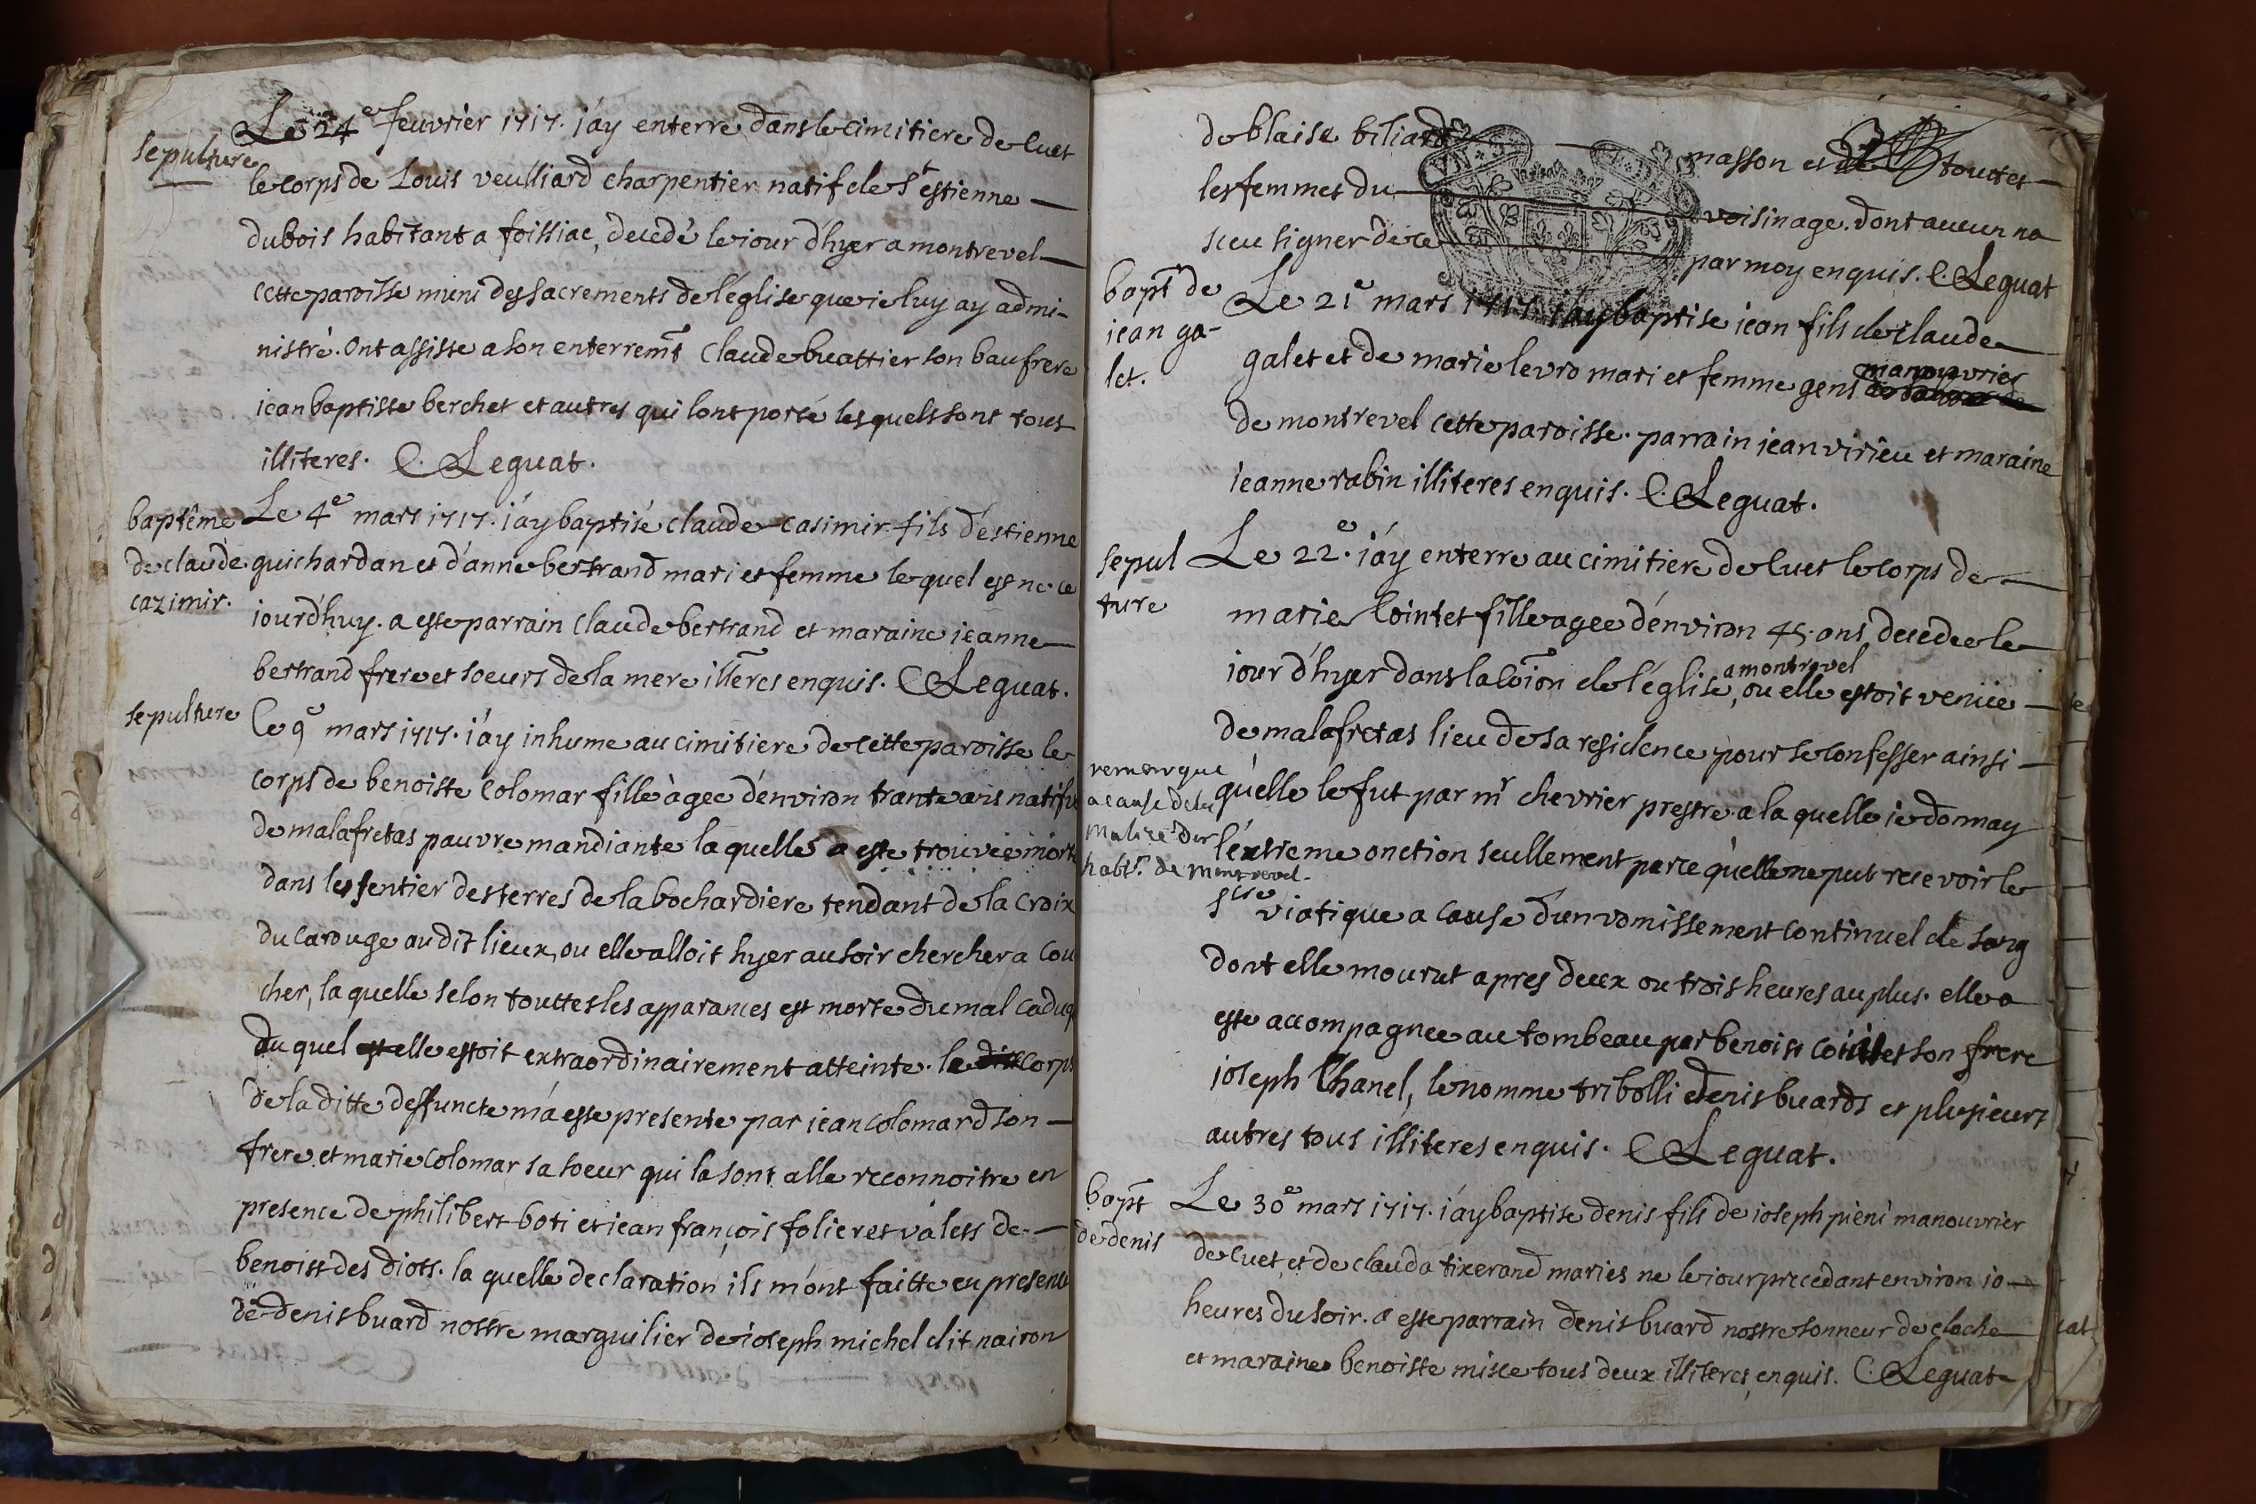 sepulture
Le 24e feuvrier 1717. i'ay enterre dans le cimitiere de Cuet
le corps de Louis veulliard charpentier natif de St estienne
dubois habitant a foissiac, decedé le iour d'hyer a montrevel
cette paroisse muni des sacrements de l'eglise que ie luy ay admi-
nistré. Ont assiste a son enterremt Claude buattier son baufrere
iean baptisse berchet et autres qui lont porté les quels sont tous
illiteres. C. Leguat.
baptême
de claude
cazimir.
Le 4e mars 1717. i'ay baptisé claude casimir fils d'estienne
guichardan et d'anne bertrand mari et femme le quel est ne ce
iourd'huy. a este parrain Claude bertrand et maraine ieanne
bertrand frere et soeurs de la mere illeres enquis. C Leguat.
sepulture
Le 9e mars 1717. i'ay inhume au cimitiere de cette paroisse le
corps de benoiste Colomar fille àgee d'environ trante ans natifve
de malafretas pauvre mandiante la quelle a este trouvée morte
dans les sentier des terres de la bochardiere tendant de la Croix
du carouge au dit lieux, ou elle alloit hyer au soir chercher a Cou
cher, la quelle selon touttes les apparances est morte du mal caduq
du quel elle estoit extraordinairement atteinte. le corps
de la ditte deffuncte m'a este presente par iean Colomard son
frere et marie Colomar sa soeur qui la sont alle reconnoitre en
presence de philibert boti et iean françois folieret valets de
benoist des diots. la quelle declaration ils m'ont faitte en presence
de denis buard nostre marguilier de ioseph michel dit nairon
de blaise biliard masson et de touttes
les femmes du voisinage. dont aucun na
sceu signer de ce par moy enquis. C Leguat
bapt de
iean ga-
let.
Le 21e mars 1717 i'ay baptise iean fils de claude
galet et de marie levro mari et femme gens manouvries
de montrevel cette paroisse. parrain iean virieu et maraine
ieanne rabin illiteres enquis. C. Leguat.
sepul
ture
Le 22e. i'ay enterre au cimitiere de Cuet le corps de
marie Cointet fille agee d'environ 45. ans, decedee le
iour d'hyer dans la coion de l'église, a montrevel ou elle estoit venüe
de malafretas lieu de sa residence pour se confesser ainsi
remarque
a cause de la
malice des
habts. de montrevel.
qu'elle le fut par mr chevrier prestre a la quelle ie donnay
l'extreme onction seullement parce qu'elle ne put recevoir le
viatique a cause d'un vomissement continuel de sang
dont elle mourut apres deux ou trois heures au plus. elle a
este accompagnee au tombeau par benoist cointet son frere
ioseph Chanel, le nomme tribolli denis buards et plusieurs
autres tous illiteres enquis. C Leguat.
bapt
de denis
Le 30e mars 1717. i'ay baptise denis fils de ioseph pieni manouvrier
de cuet, et de clauda tixerand maries ne le iour precedant environ 10
heures du soir. a este parrain denis buard nostre sonneur de cloche
et maraine benoiste misce tous deux illiteres, enquis. C. Leguat